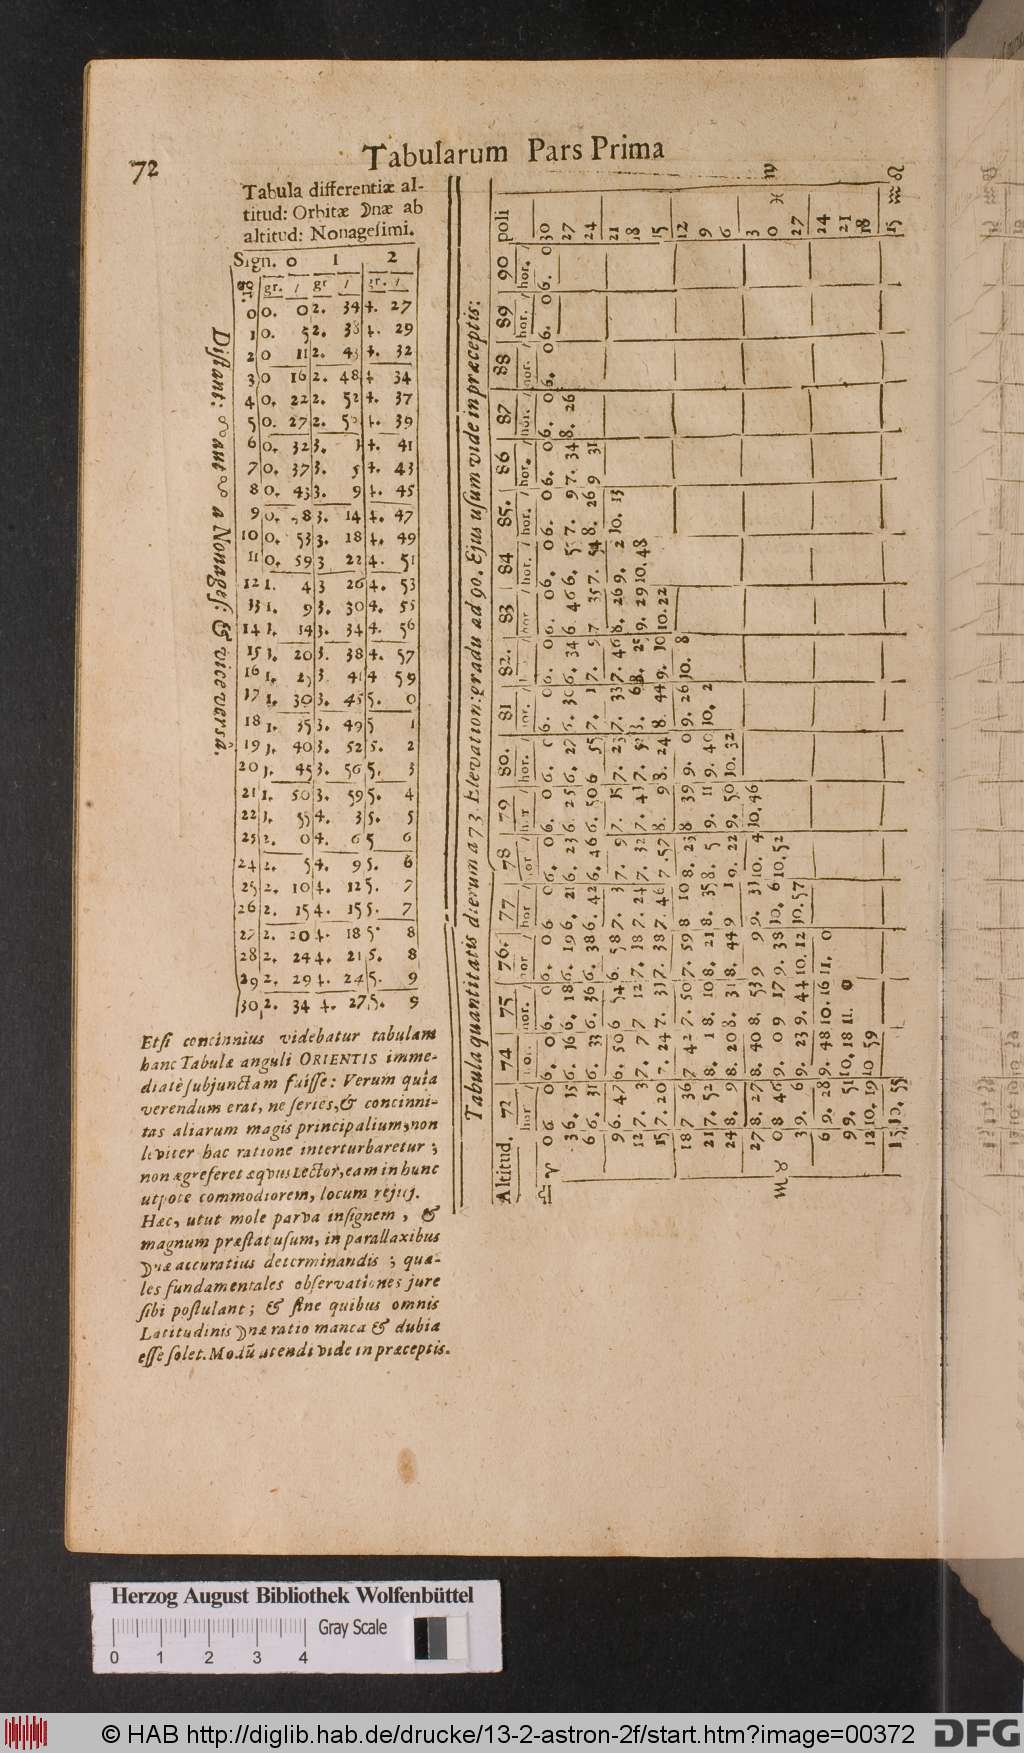 72
Tabularum Pars Prima
Tabula differentiæ al-
titud: Orbitæ ☽næ ab
altitud: Nonagesimi.
Sign. 0 1 2
gr. gr. / gr / gr. /
0 0. 0 2. 34 4. 27
1 0. 5 2. 38 4. 29
2 0 11 2. 43 4. 32
3 0 16 2. 48 4 34
4 0. 22 2. 52 4. 37
5 0. 27 2. 4. 39
6 0. 32 3. 4. 41
7 0. 37 3. 5 4. 43
8 0. 43 3. 9 4. 45
9 0. 48 3. 14 4. 47
10 0. 53 3. 18 4. 49
11 0. 59 3 22 4. 51
12 1. 4 3 26 4. 53
13 1. 9 3. 30 4. 55
14 1. 14 3. 34 4. 56
15 1. 20 3. 38 4. 57
16 1. 25 3. 41 4 59
17 1. 30 3. 45 5. 0
18 1. 35 3. 49 5 1
19 1. 40 3. 52 5. 2
20 1. 45 3. 56 5. 3
21 1. 50 3. 59 5. 4
22 1. 55 4. 3 5. 5
23 2. 0 4. 6 5 6
24 2. 5 4. 9 5. 6
25 2. 10 4. 12 5. 7
26 2. 15 4. 15 5. 7
27 2. 20 4. 18 5. 8
28 2. 24 4. 21 5. 8
29 2. 29 4. 24 5. 9
30 2. 34 4. 27 5. 9
Distant: ☍ aut ☍ a Nonages: & vice versâ.
Etsi concinnius videbatur tabulam
hanc Tabulæ anguli ORIENTIS imme-
diatè subjunctam fuisse: Verum quia
verendum erat, ne series, & concinni-
tas aliarum magis principalium, non
leviter hac ratione interturbaretur;
non ægre feret æquus Lector, eam in hunc
utpote commodiorem, locum rejici.
Hæc, utut mole parva insignem, &
magnum præstat usum, in parallaxibus
☽næ accuratius determinandis; qua-
les fundamentales observationes jure
sibi postulant; & sine quibus omnis
Latitudinis ☽næ ratio manca & dubia
esse solet. Modū utendi vide in præceptis.
Tabula quantitatis dierum a 73. Elevation: gradu ad 90. Ejus usum vide in præceptis:
Altitud. 72 74 75 76. 77 78 79 80. 81 82. 83 84 85. 86 87 88 89 90 poli
hor. / hor. / hor. / hor. / hor. / hor. / hor. / hor. / hor. / hor. / hor. / hor. / hor. / hor. / hor. / hor. / hor.
♎ ♈ 0 6 0 6. 0 6. 0 6. 0 6 0 6. 0 6. 0 6. 0 6. 0 6. 0 6. 0 6. 0 6. 0 6. 0 6. 0 6. 0 6. 0 6. 0 30
3 6. 15 6. 16 6. 18 6. 19 6. 21 6. 23 6. 25 6. 27 6. 30 6. 34 6. 46 6. 57. 9 7. 34 8. 26 27
6 6. 31 6. 33 6. 36 6. 38 6. 42 6. 46 6. 50 6 55 7. 1 7. 9 7 35 7. 54 8. 26 9 31 24
9 6. 47 6. 50 6 54 6. 58 7. 3 7. 9 7. 15 7. 23 7. 33 7. 46 8. 26 9. 2 10. 13 21
12 7. 3 7. 7 7 12 7. 18 7. 24 7. 32 7. 43 7. 8. 25 9. 29 10. 48 18
15 7. 20 7. 24 7. 31 7. 38 7. 46 7. 57 8. 9 8. 24 8. 44 9. 10 10. 22 15
18 7 36 7 42 7. 50 7. 59 8 10 8. 23 8 39 9. 0 9. 26 10. 8 12
21 7. 52 8. 1 8. 10 8. 21 8. 35 8. 5 9. 11 9. 40 10. 2 9
24 8. 9 8. 20 8. 31 8. 44 9 1 9. 22 9. 50 10. 32 6
27 8. 27 8. 40 8. 53 9 9 9. 33 10. 4 10. 46 3
♏ ♉ 0 8 46 9. 0 9 17 9. 38 10. 6 10. 52 0 ♓ ♍
3 9. 6 9. 23 9. 44 10. 12 10. 57 27
6 9. 28 9. 48 10. 16 11. 0 24
9 9. 51 10. 18 11. 0 21
12 10. 19 10 59 18
15 10. 55 15 ♒ ♌
Herzog August Bibliothek Wolfenbüttel
Gray Scale
0 1 2 3 4
© HAB http://diglib.hab.de/drucke/13-2-astron-2f/start.htm?image=00372
DFG